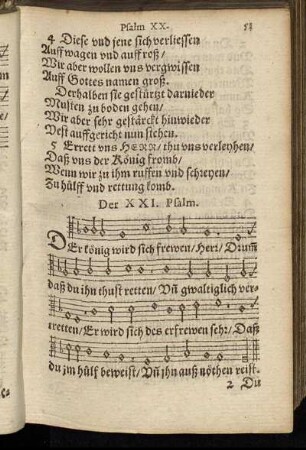 Psalm XX. 58
4 Diese vnd jene sich verliessen
Auff wagen vnd auff roß/
Wir aber wollen vns vergwissen
Auff Gottes namen groß.
Derhalben sie gestürtzt darnieder
Musten zu boden gehen/
Wir aber sehr gestärckt hinwieder
Vest auffgericht nun stehen.
5 Errett vns HERR/ thu vns verleyhen/
Daß vns der König fromb/
Wenn wir zu ihm ruffen vnd schreyen/
Zu hülff vnd rettung komb.
Der XXI. Psalm.
DEr könig wird sich frewen/ Herr/ Drum̃
daß du ihn thust retten/ Vñ gwaltiglich ver-
tretten/ Er wird sich des erfrewen sehr/ Daß
du jm hülf beweist/ Vñ jhn auß nöthen reist.
2 Du